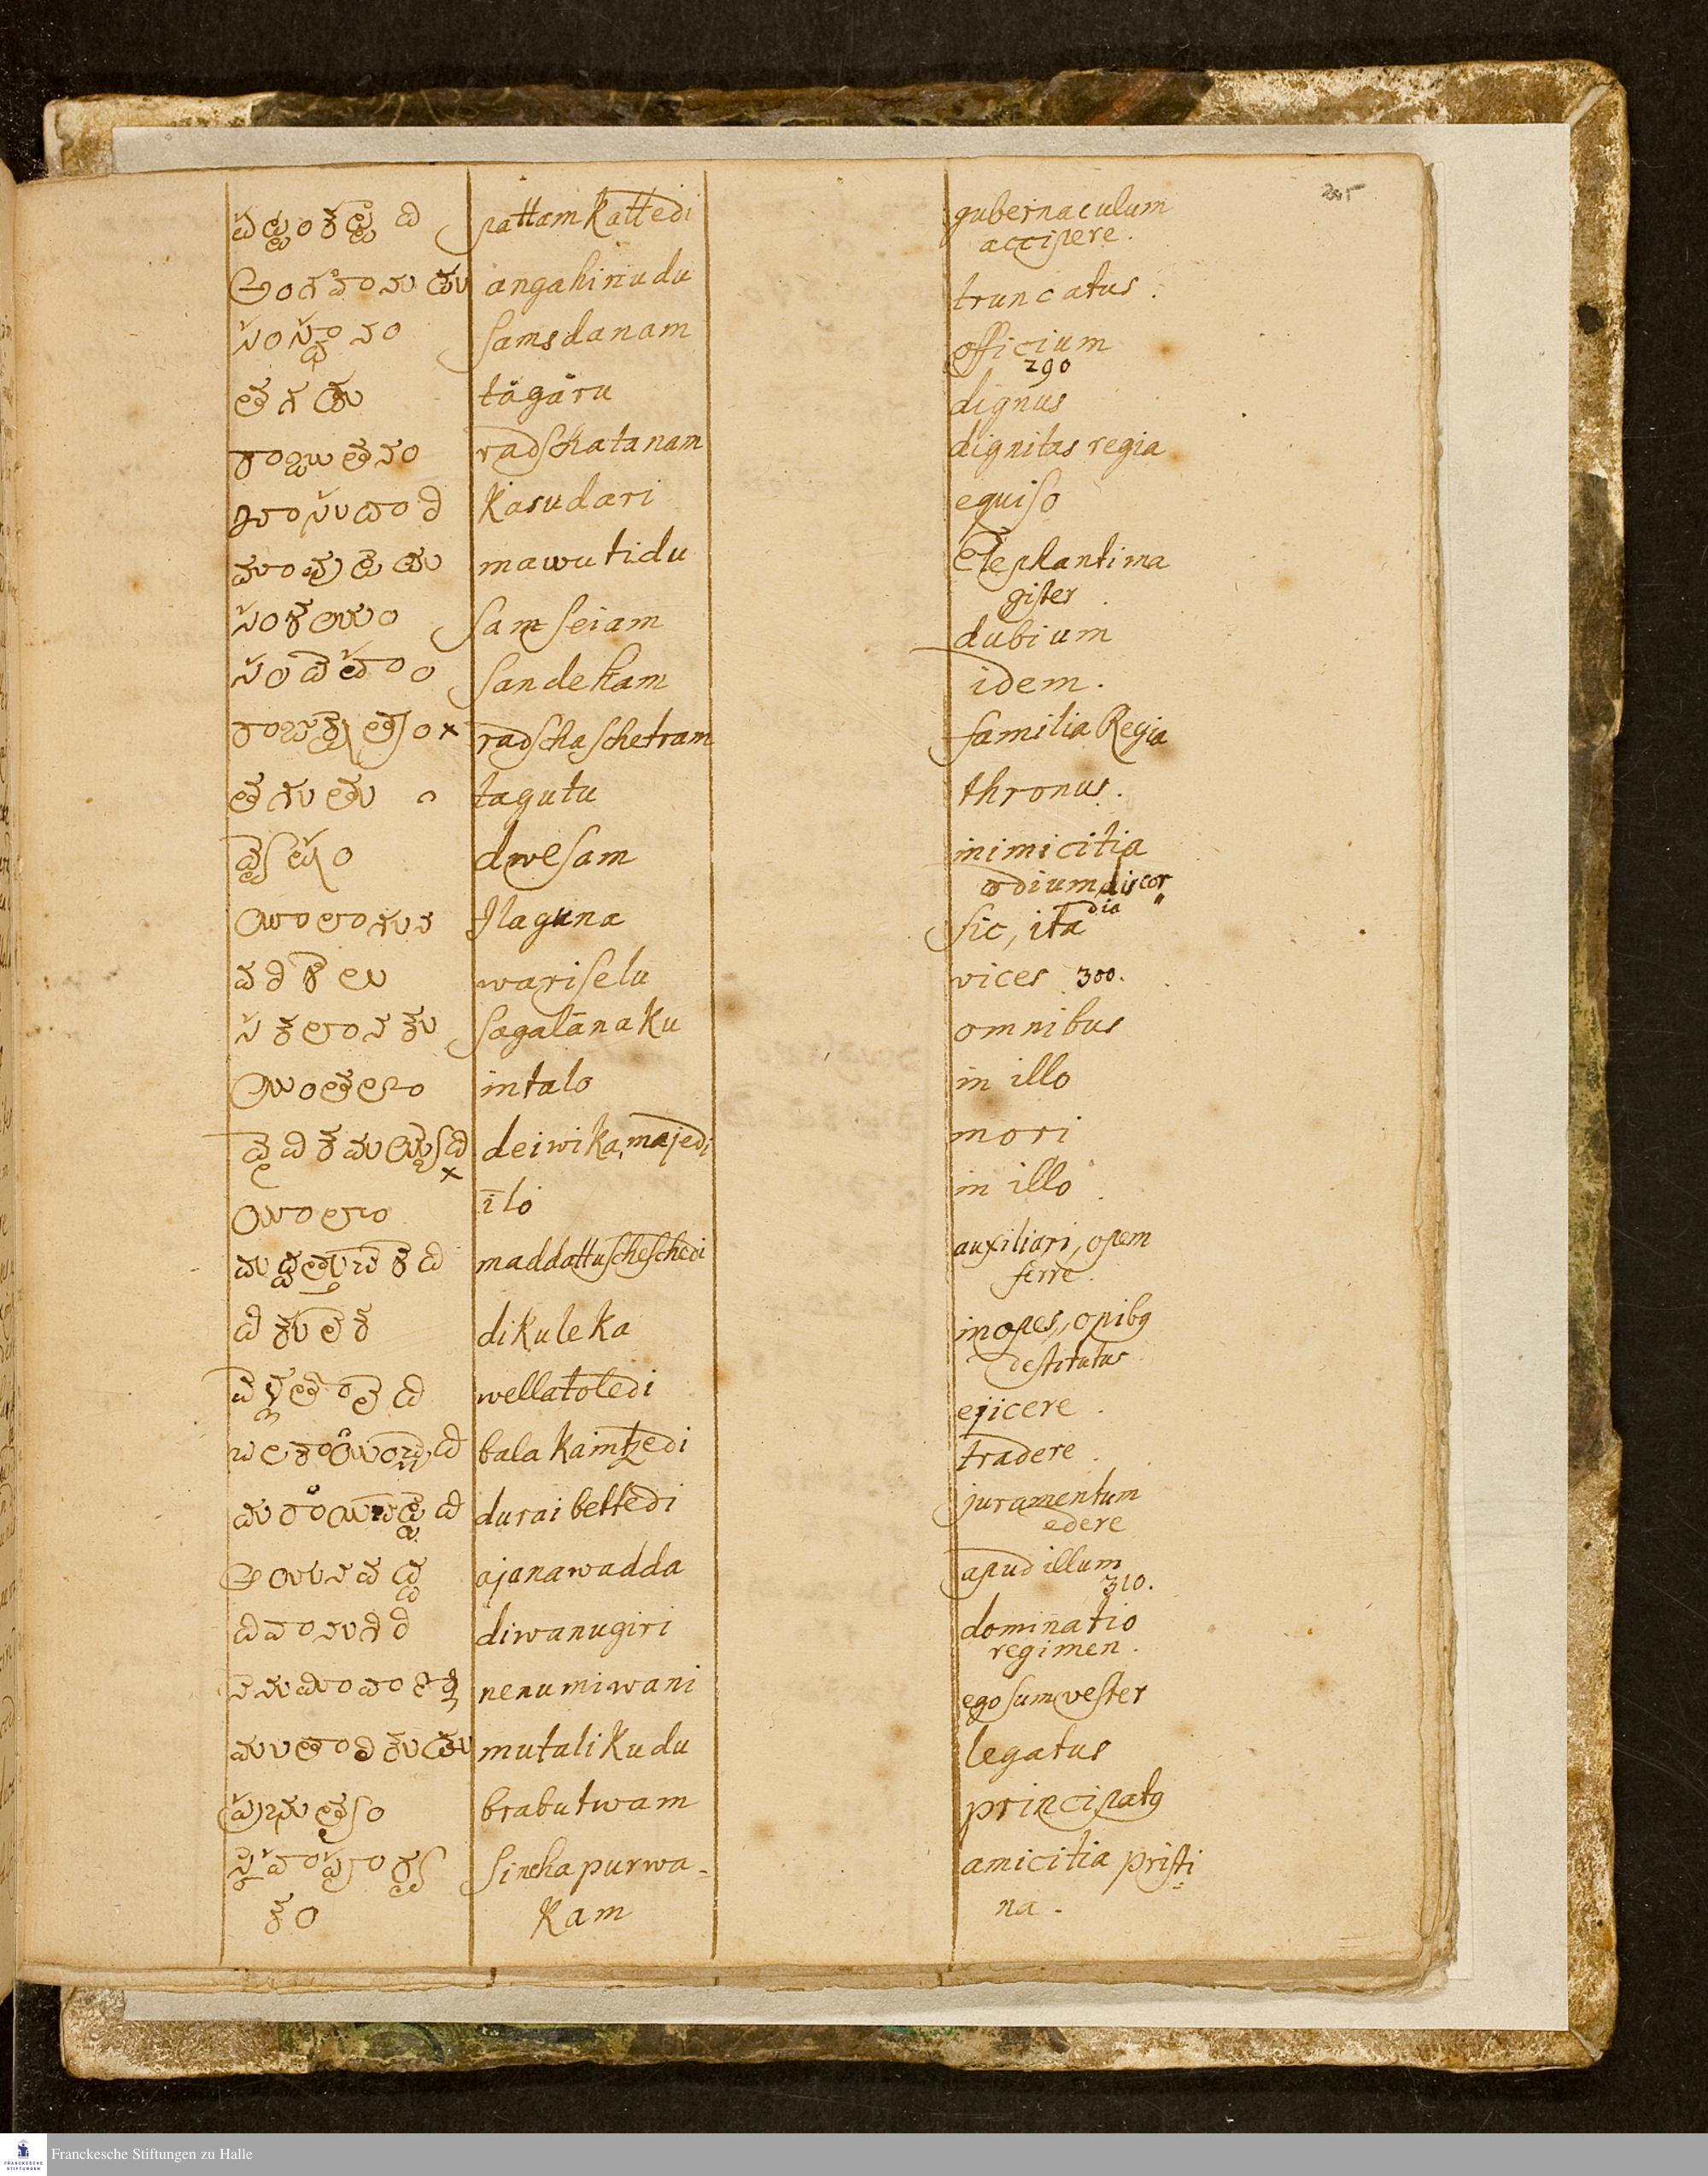 పట్టంకట్టెది pattam kattedi gubernaculum
accipere.
అంగహీనుడు angahinudu truncatus.
సంస్థానం samsdanam officium
290
తగరు tägäru dignus
రాజతనం radschatanam dignitas regia
కాసుదారి kasudari equiso
మావుటిడు mawutidu Elephantima
gister.
సంశయం samseiam dubium
సందేహం sandeham idem.
radschaschetram familia Regia
తగుతు tagutu thronus.
ద్వేషం dwesam inimicitia
odium, discor
dia
ఈలాగున Ilaguna sic, ita
వరిశెలు wariselu vices 300.
సకలానకు sagalānaku omnibus
ఇంతలో intalo in illo
deiwika, majedi mori
ఈలో ilo in illo
maddattuscheschedi auxiliari, opem
ferre.
దికులేక dikuleka inopes, opibg
destitutus
wellatoledi ejicere.
bala kaintzedi tradere.
durai bettedi juramentum
edere
అయనవద్ద ajanawadda apud illum
310.
దివానుగిరి diwanugiri dominatio
regimen.
nenumiwani ego sum vester
ముతాలికుడు mutalikudu legatus
ప్రభుత్వం brabutwam principatg
sineha purwa- amicitia pristi
కం kam na.
Franckesche Stiftungen zu Halle